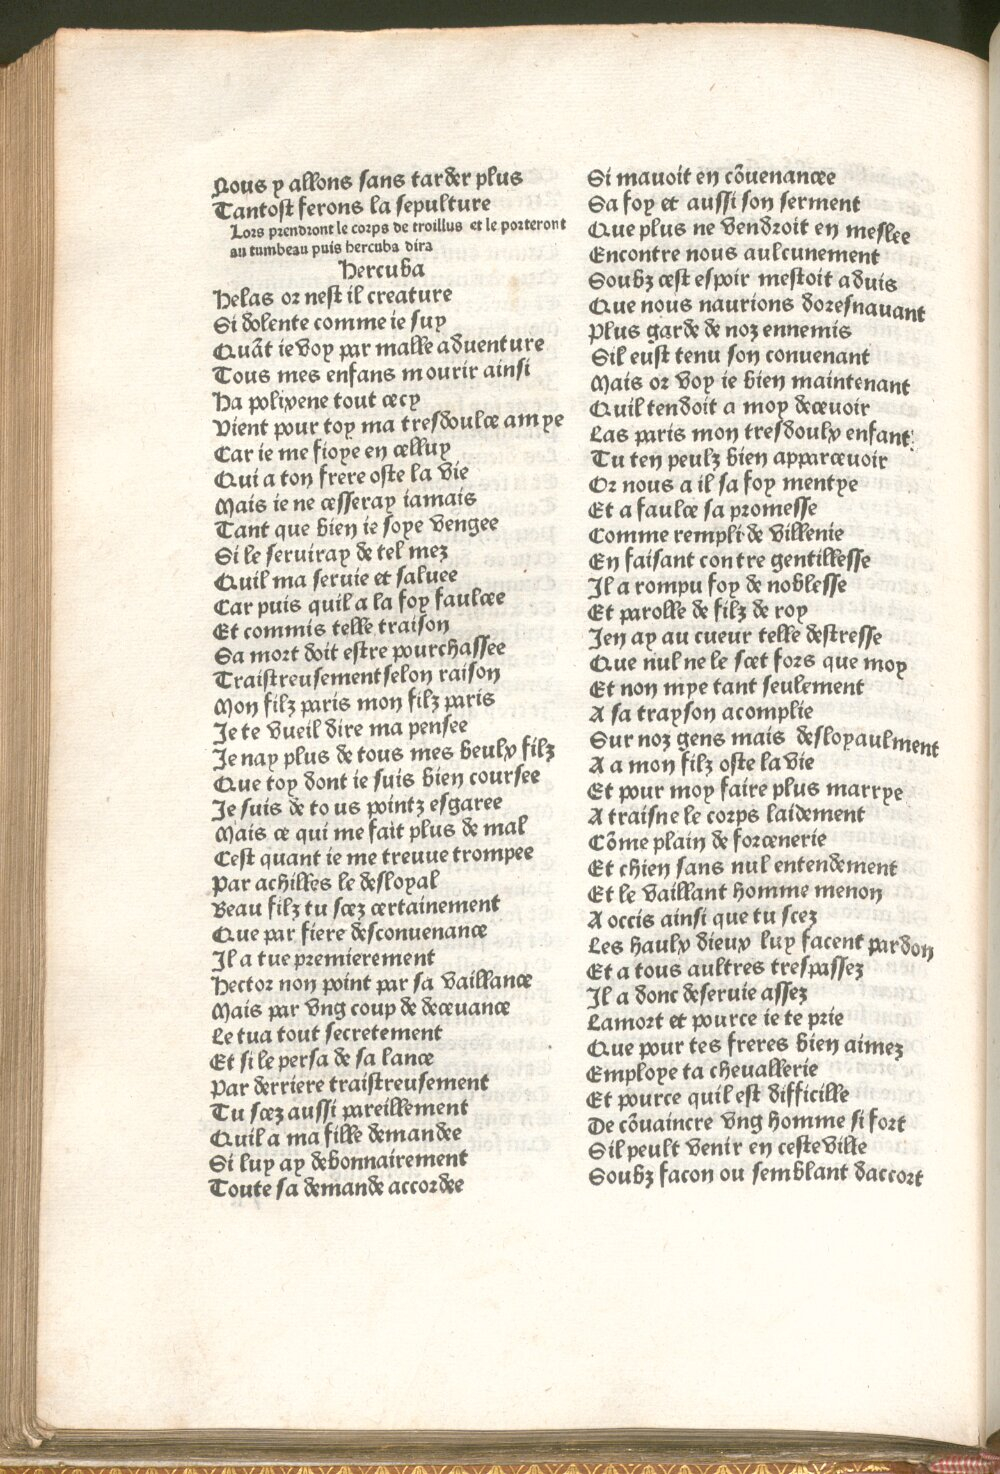 Nous y allons sans tarder plus
Tantost ferons la sepulture
Lors prendront le corps de troillus et le porteront
au tumbeau puis hercuba dira
Hercuba
Helas or nest il creature
Si dolente comme ie suy
Quãt ie voy par malle aduenture
Tous mes enfans mourir ainsi
Ha polixene tout cecy
Vient pour toy ma tresdoulce amye
Car ie me fioye en celluy
Qui a ton frere oste la vie
Mais ie ne cesseray iamais
Tant que bien ie soye vengee
Si le seruiray de tel mez
Quil ma seruie et saluee
Car puis quil a la foy faulcee
Et commis telle traison
Sa mort doit estre pourchassee
Traistreusement selon raison
Mon filz paris mon filz paris
Je te vueil dire ma pensee
Je nay plus de tous mes beulx filz
Que toy dont ie suis bien coursee
Je suis de to us pointz esgaree
Mais ce qui me fait plus de mal
Cest quant ie me treuue trompee
Par achilles le desloyal
Beau filz tu scez certainement
Que par fiere desconuenance
Il a tue premierement
Hector non point par sa vaillance
Mais par vng coup de deceuance
Le tua tout secretement
Et si le persa de sa lance
Par derriere traistreusement
Tu scez aussi pareillement
Quil a ma fille demandee
Si luy ay debonnairement
Toute sa demande accordee
Si mauoit en cõuenancee
Sa foy et aussi son serment
Que plus ne vendroit en meslee
Encontre nous aulcunement
Soubz cest espoir mestoit aduis
Que nous naurions doresnauant
Plus garde de noz ennemis
Sil eust tenu son conuenant
Mais or voy ie bien maintenant
Quil tendoit a moy deceuoir
Las paris mon tresdoulx enfant
Tu ten peulz bien apparceuoir
Or nous a il sa foy mentye
Et a faulce sa promesse
Comme rempli de villenie
En faisant contre gentillesse
Il a rompu foy de noblesse
Et parolle de filz de roy
Jen ay au cueur telle destresse
Que nul ne le scet fors que moy
Et non mye tant seulement
A sa trayson acomplie
Sur noz gens mais desloyaulment
A a mon filz oste la vie
Et pour moy faire plus marrye
A traisne le corps laidement
Cõme plain de forcenerie
Et chien sans nul entendement
Et le vaillant homme menon
A occis ainsi que tu scez
Les haulx dieux luy facent pardon
Et a tous aultres trespassez
Il a donc deseruie assez
Lamort et pource ie te prie
Que pour tes freres bien aimez
Employe ta cheuallerie
Et pource quil est difficille
De cõuaincre vng homme si fort
Sil peult venir en ceste ville
Soubz facon ou semblant daccort